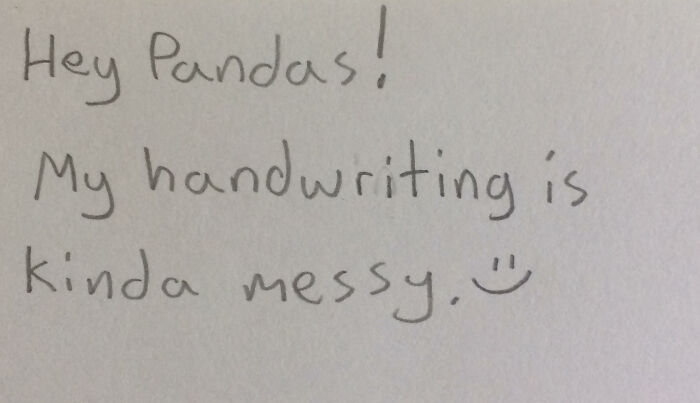 Hey Pandas!
My handwriting is
kinda messy. Ü